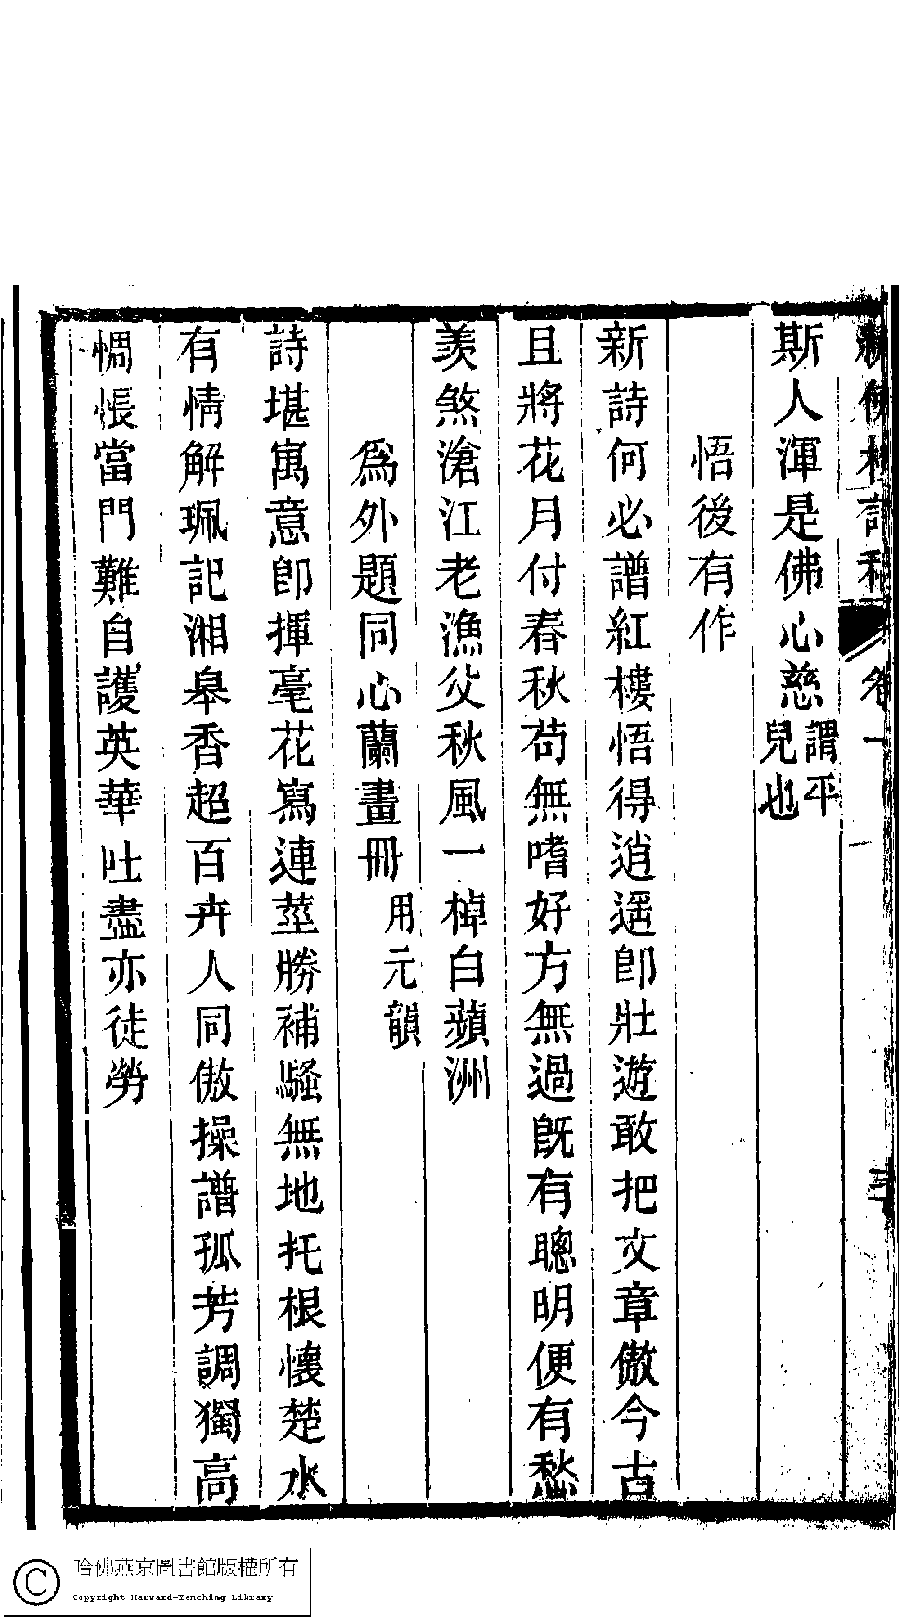 卷一
斯人渾是佛心慈謂平兒也
悟後有作
新詩何必譜紅樓悟得逍遥卽壯遊敢把文章傲今古
且將花月付春秋苟無嗜好方無過旣有聰明便有愁
羨煞滄江老漁父秋風一棹白蘋洲
爲外題同心蘭畫冊用元韻
詩堪寓意卽揮毫花寫連莖勝補騷無地托根懷楚水
有情解珮記湘皋香超百卉人同傲操譜孤芳調獨高
惆悵當門難自護英華吐盡亦徒勞
哈佛燕京圖書館版權所有
Copyright Harvard-Yenching Library